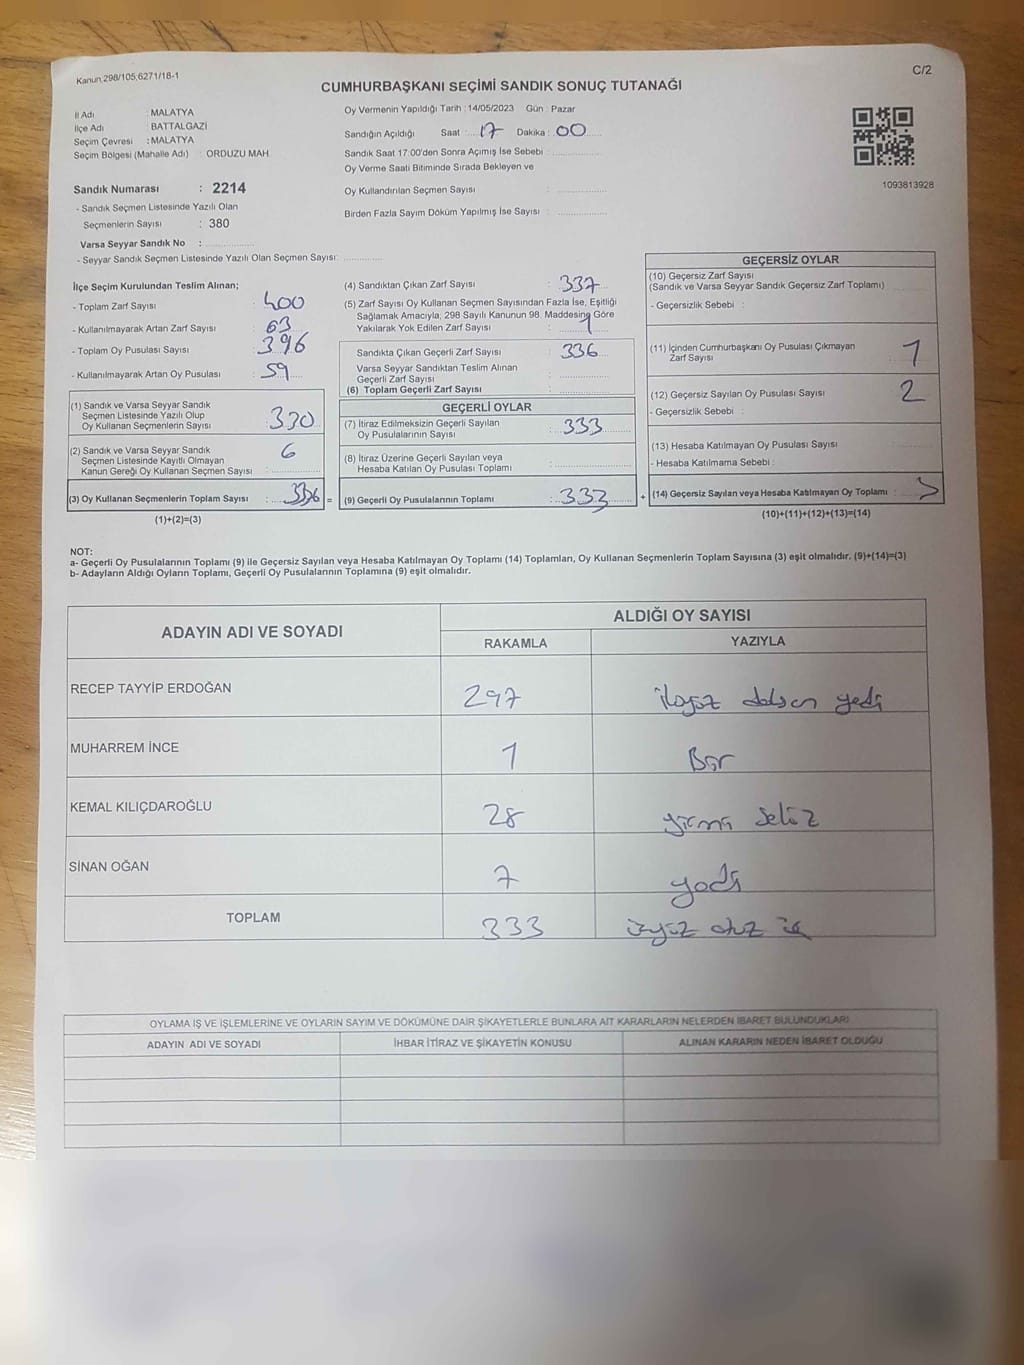 Kanun,298/105,6271/18-1
C/2
CUMHURBAŞKANI SEÇİMİ SANDIK SONUÇ TUTANAĞI
İl Adı : MALATYA
İlçe Adı : BATTALGAZİ
Seçim Çevresi : MALATYA
Seçim Bölgesi (Mahalle Adı) : ORDUZU MAH
Sandık Numarası : 2214
- Sandık Seçmen Listesinde Yazılı Olan
Seçmenlerin Sayısı : 380
Varsa Seyyar Sandık No :
- Seyyar Sandık Seçmen Listesinde Yazılı Olan Seçmen Sayısı:
Oy Vermenin Yapıldığı Tarih : 14/05/2023 Gün : Pazar
Sandığın Açıldığı Saat : 17 Dakika : 00
Sandık Saat 17:00'den Sonra Açımış İse Sebebi :
Oy Verme Saati Bitiminde Sırada Bekleyen ve
Oy Kullandırılan Seçmen Sayısı :
Birden Fazla Sayım Döküm Yapılmış İse Sayısı :
1093813928
İlçe Seçim Kurulundan Teslim Alınan;
- Toplam Zarf Sayısı : 400
- Kullanılmayarak Artan Zarf Sayısı : 63
- Toplam Oy Pusulası Sayısı : 396
- Kullanılmayarak Artan Oy Pusulası : 59
(1) Sandık ve Varsa Seyyar Sandık
Seçmen Listesinde Yazılı Olup
Oy Kullanan Seçmenlerin Sayısı : 330
(2) Sandık ve Varsa Seyyar Sandık
Seçmen Listesinde Kayıtlı Olmayan
Kanun Gereği Oy Kullanan Seçmen Sayısı : 6
(3) Oy Kullanan Seçmenlerin Toplam Sayısı : 336 =
(1)+(2)=(3)
(4) Sandıktan Çıkan Zarf Sayısı : 337
(5) Zarf Sayısı Oy Kullanan Seçmen Sayısından Fazla İse, Eşitliği
Sağlamak Amacıyla, 298 Sayılı Kanunun 98. Maddesine Göre
Yakılarak Yok Edilen Zarf Sayısı : 1
Sandıkta Çıkan Geçerli Zarf Sayısı : 336
Varsa Seyyar Sandıktan Teslim Alınan
Geçerli Zarf Sayısı :
(6) Toplam Geçerli Zarf Sayısı :
GEÇERLİ OYLAR
(7) İtiraz Edilmeksizin Geçerli Sayılan
Oy Pusulalarının Sayısı : 333
(8) İtiraz Üzerine Geçerli Sayılan veya
Hesaba Katılan Oy Pusulası Toplamı :
(9) Geçerli Oy Pusulalarının Toplamı : 333 +
GEÇERSİZ OYLAR
(10) Geçersiz Zarf Sayısı
(Sandık ve Varsa Seyyar Sandık Geçersiz Zarf Toplamı)
- Geçersizlik Sebebi :
(11) İçinden Cumhurbaşkanı Oy Pusulası Çıkmayan
Zarf Sayısı : 1
(12) Geçersiz Sayılan Oy Pusulası Sayısı : 2
- Geçersizlik Sebebi :
(13) Hesaba Katılmayan Oy Pusulası Sayısı :
- Hesaba Katılmama Sebebi :
(14) Geçersiz Sayılan veya Hesaba Katılmayan Oy Toplamı :
(10)+(11)+(12)+(13)=(14)
NOT:
a- Geçerli Oy Pusulalarının Toplamı (9) ile Geçersiz Sayılan veya Hesaba Katılmayan Oy Toplamı (14) Toplamları, Oy Kullanan Seçmenlerin Toplam Sayısına (3) eşit olmalıdır. (9)+(14)=(3)
b- Adayların Aldığı Oyların Toplamı, Geçerli Oy Pusulalarının Toplamına (9) eşit olmalıdır.
ADAYIN ADI VE SOYADI
ALDIĞI OY SAYISI
RAKAMLA YAZIYLA
RECEP TAYYİP ERDOĞAN 297 ikiyüz doksan yedi
MUHARREM İNCE 1 Bir
KEMAL KILIÇDAROĞLU 28 yirmi sekiz
SİNAN OĞAN 7 yedi
TOPLAM 333 üçyüz otuz üç
OYLAMA İŞ VE İŞLEMLERİNE VE OYLARIN SAYIM VE DÖKÜMÜNE DAİR ŞİKAYETLERLE BUNLARA AİT KARARLARIN NELERDEN İBARET BULUNDUKLARI
ADAYIN ADI VE SOYADI İHBAR İTİRAZ VE ŞİKAYETİN KONUSU ALINAN KARARIN NEDEN İBARET OLDUĞU